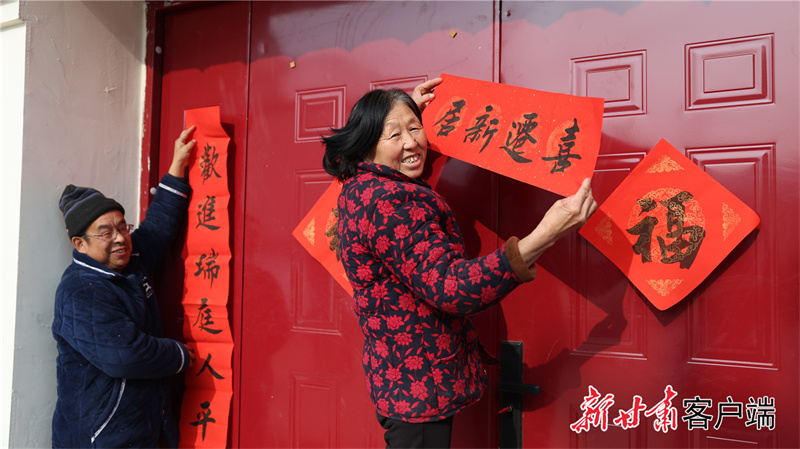 歡進瑞庭人平
喜遷新居
福
新甘肃客户端